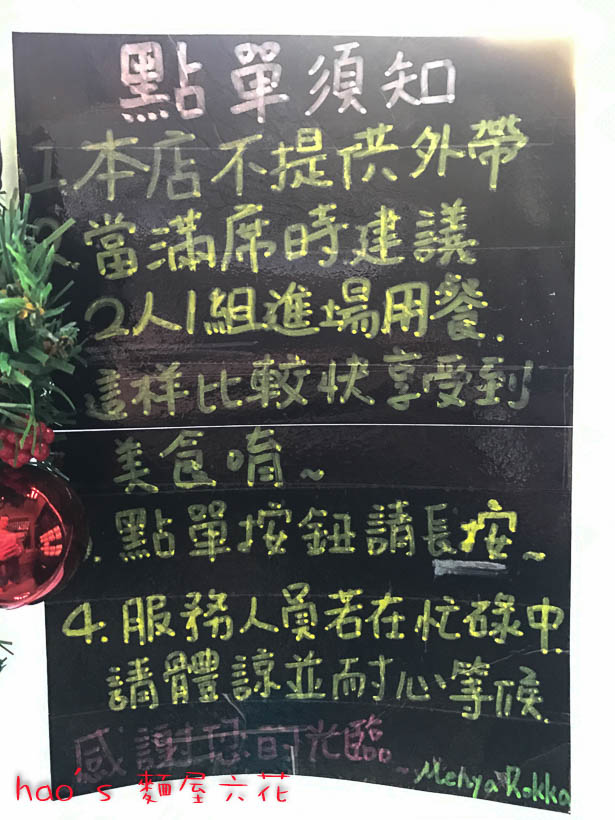 點單須知
1.本店不提供外帶
2.當滿席時建議
2人1組進場用餐.
這样比較快享受到
美食唷~
.點單按鈕請長按~
4.服務人員若在忙碌中
請體諒並耐心等候.
感謝您的光臨
~Menya Rokka
hao's 麵屋六花